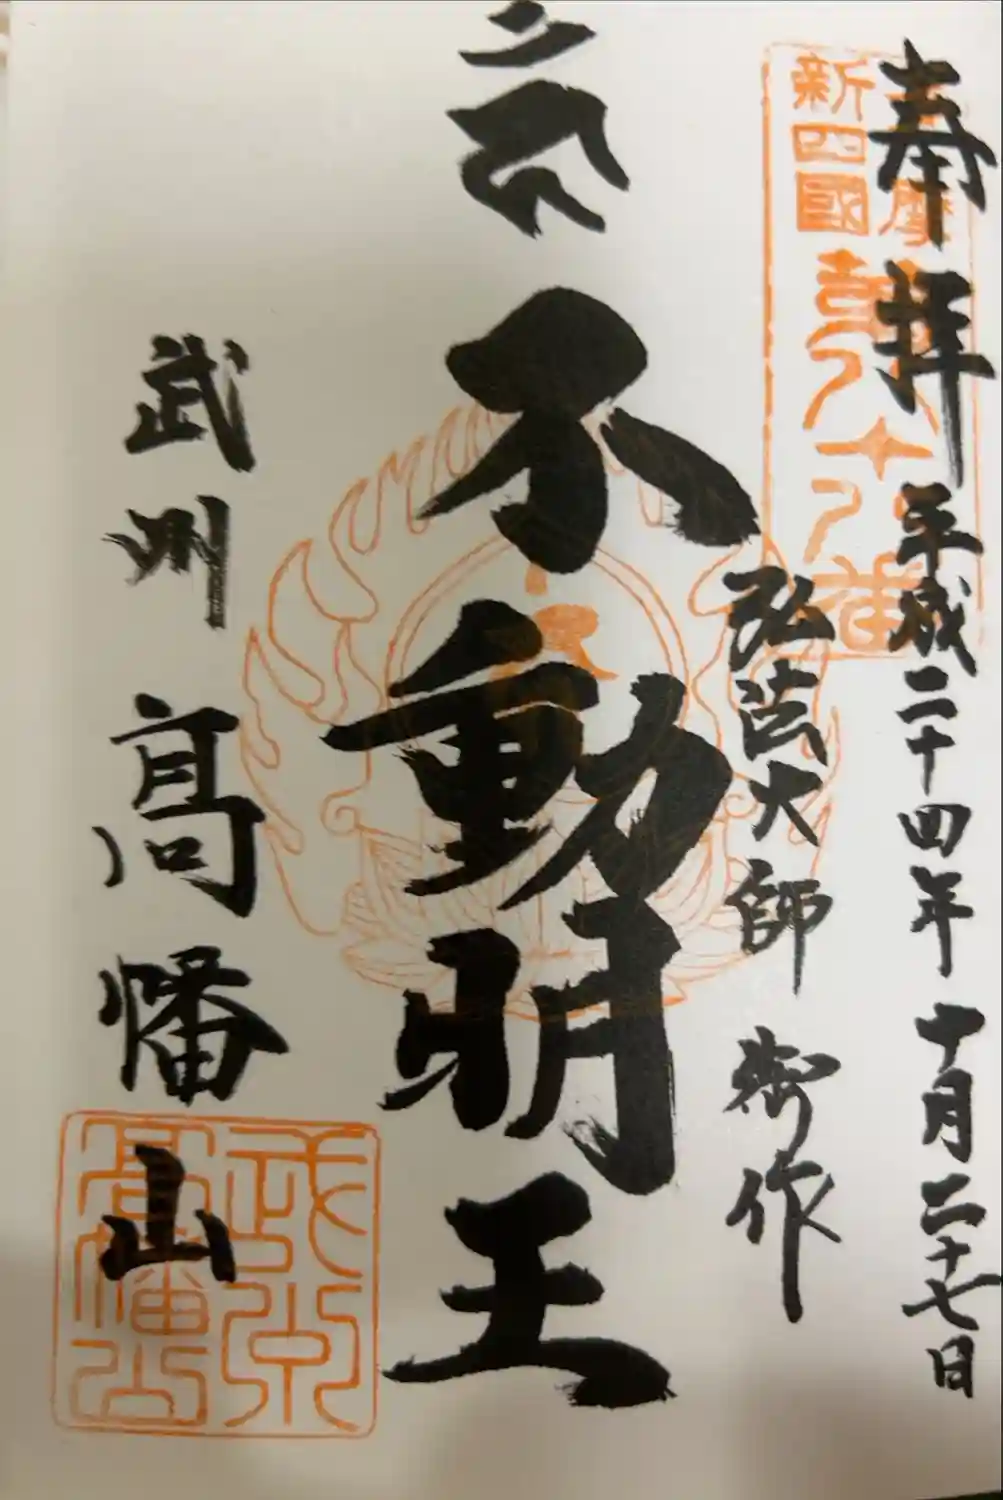 奉拝 平成二十四年十月二十七日
弘法大師 御作
不動明王
武州 高幡山
新四國
八十八番
武州
高幡山